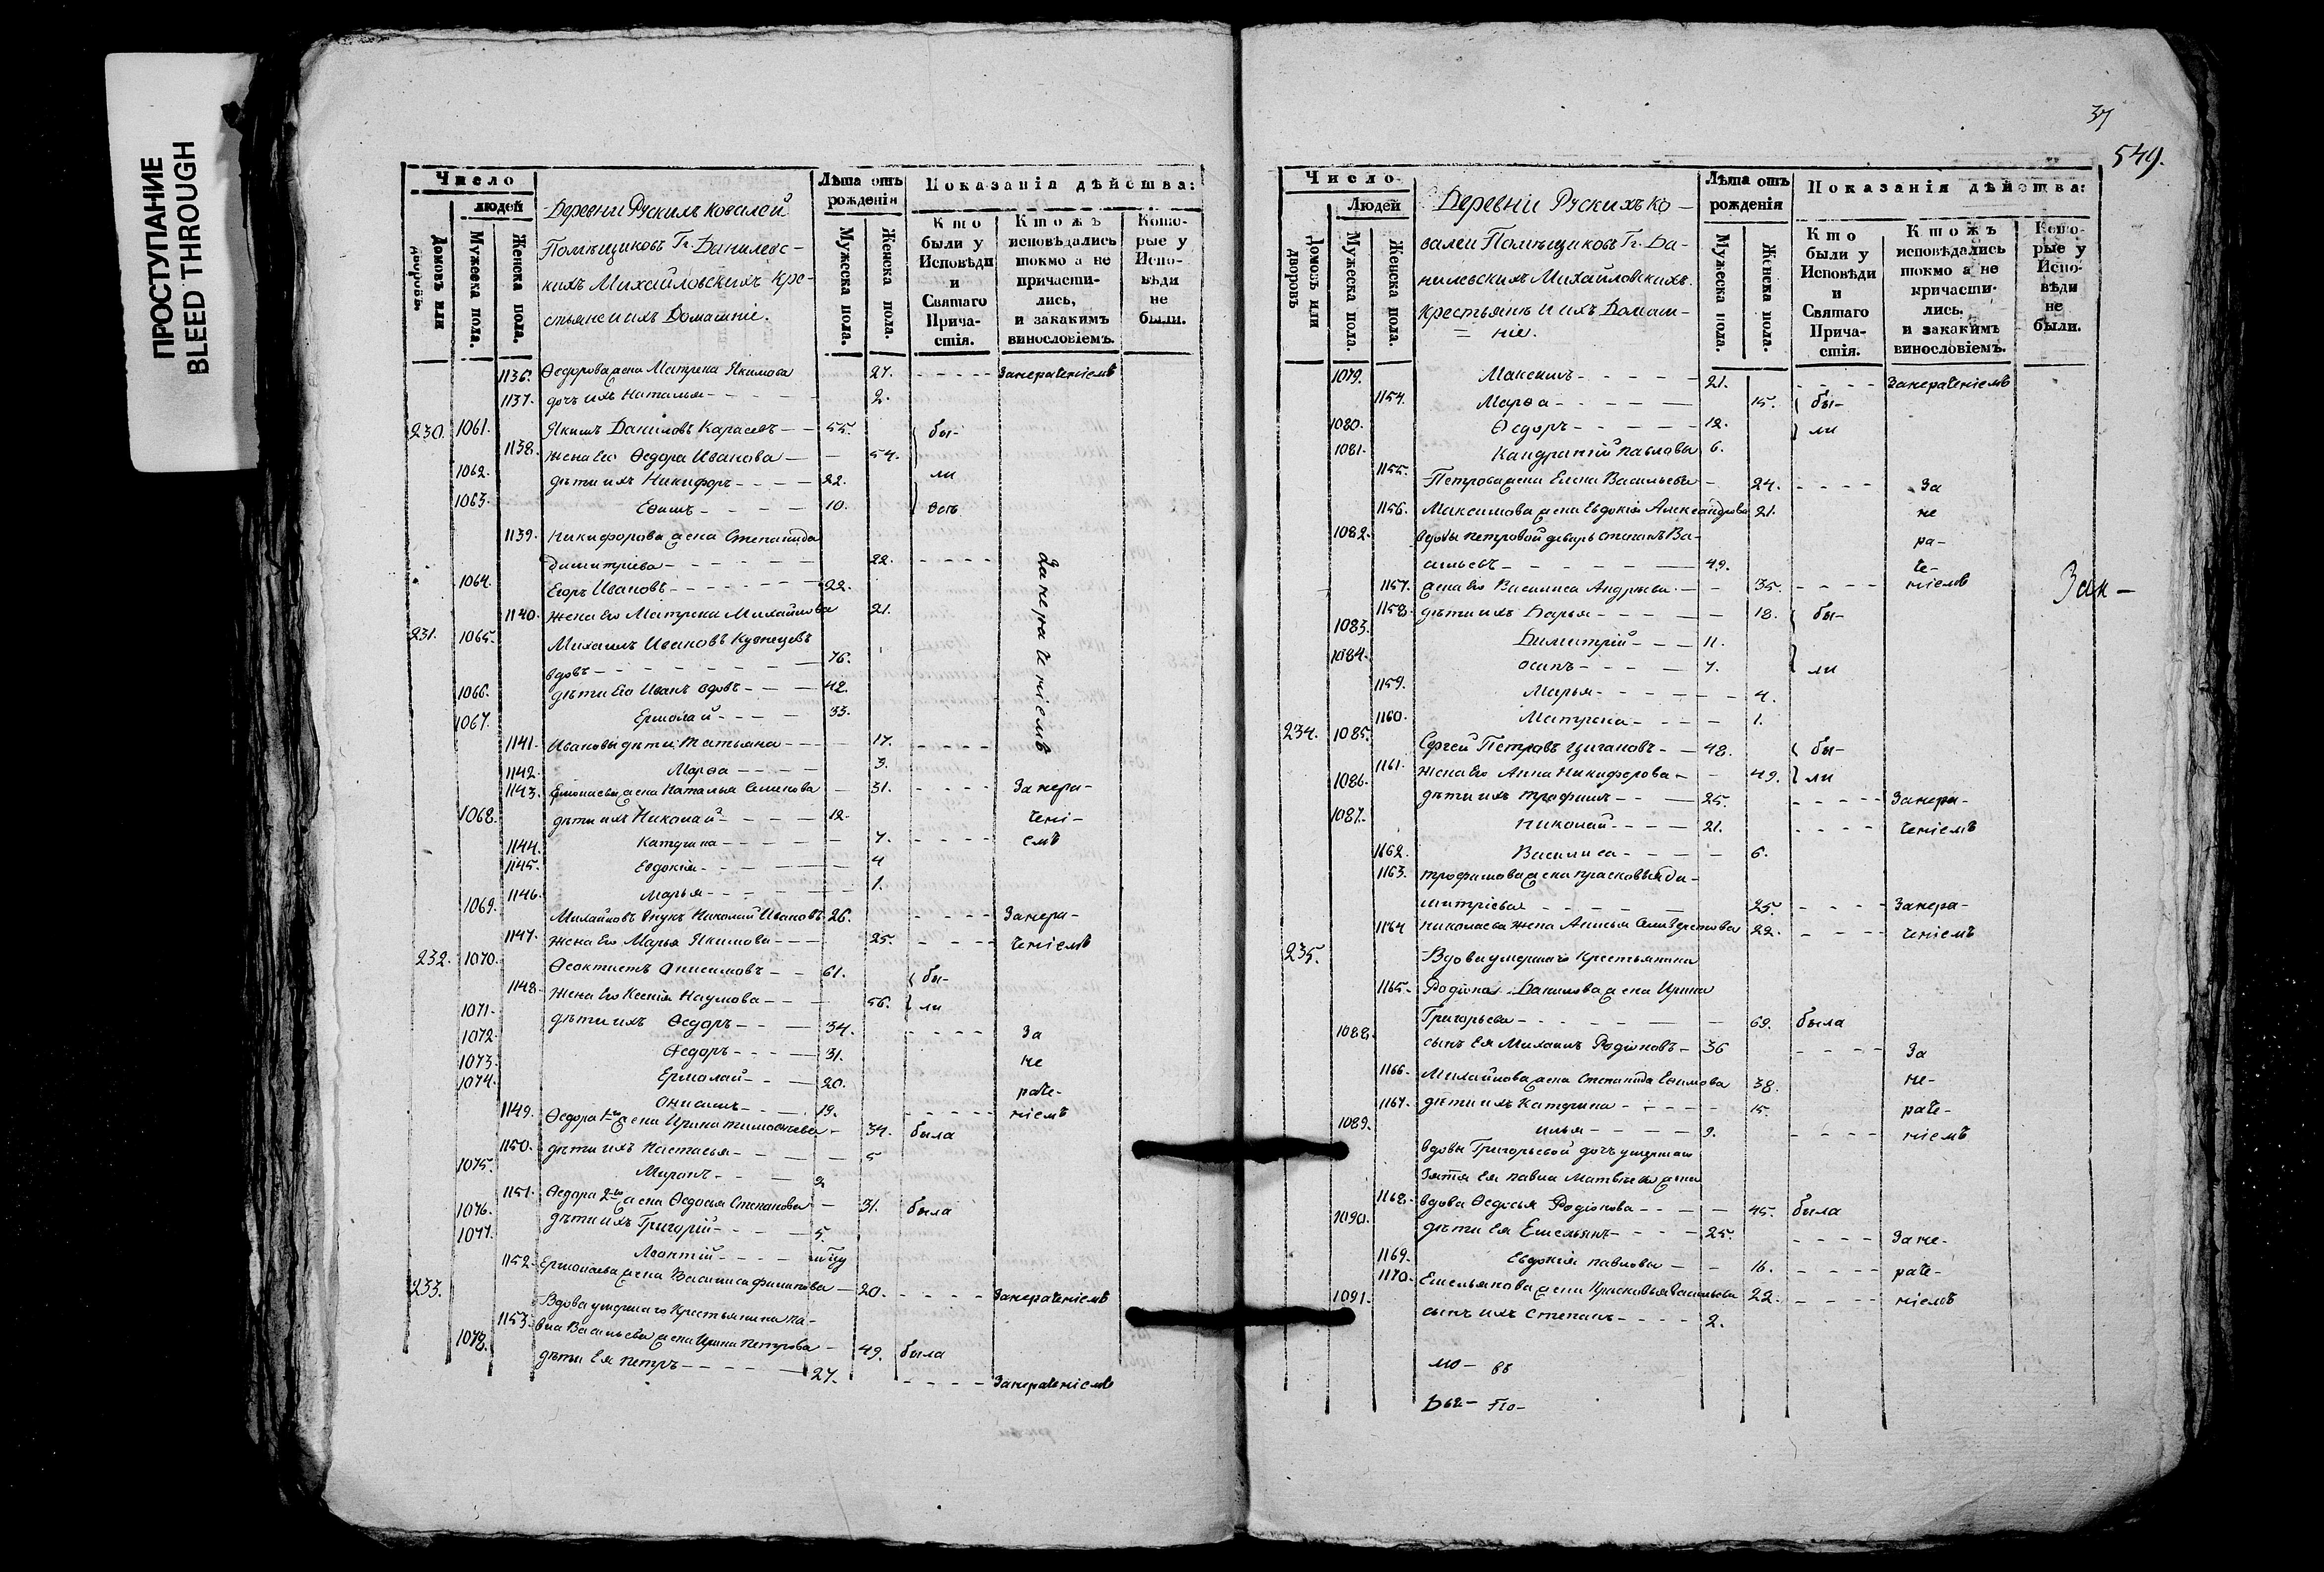 ПРОСТУПАНИЕ
BLEED THROUGH
Число
людей
Домовъ или дворовъ.
Мужеска пола.
Женска пола.
Деревни Рускихъ Ковалей
Помѣщиковъ Гг. Данилевс-
кихъ Михайловскихъ кре-
стьяне и ихъ Домашніе.
Лѣта отъ рожденія
Мужеска пола.
Женска пола.
Показанія дѣйства:
Кто были у Исповѣди и Святаго Прича-стія.
Ктожъ исповѣдались токмо а не причасти-лись, и закакимъ винословіемъ.
Кото-рые у Испо-вѣди не были.
1136. Ѳедорова жена Матрена Якимова 27. - - - - - Занераченіемъ
1137. дочь ихъ Наталья - - - - 2.
230. 1061. Якимъ Даниловъ Карасевъ - - 55. бы-
1138. жена Его Ѳедора Иванова - - 54.
1062. дѣти ихъ Никифоръ - - - - 22. ли
1063. Ефимъ - - - - 10. Все
1139. Никифорова жена Степанида
Димитріева - - - - - - 22. - - - -
1064. Егоръ Ивановъ - - - - - 22.
1140. жена Его Матрена Михайлова 21.
Занераченіемъ
231. 1065. Михаилъ Ивановъ Кузнецовъ
вдовъ - - - - - - - 76.
1066. дѣти Его Иванъ вдовъ - - - 42.
1067. Ермолай - - - - 33.
1141. Ивановы дѣти Татьяна - - - - 17. - - - -
1142. Марѳа - - - - 3.
1143. Ермолаева жена Наталья Семенова - 31. - - - - Занера-
1068. дѣти ихъ Николай - - - - 12. чені-
1144. Катерина - - - - - 7. - - - - емъ
1145. Евдокія - - - - - 4
1146. Марья - - - - - 1.
1069. Михайловъ внукъ Николай Ивановъ 26. - - - - Занера-
1147. жена Его Марья Якимова - - - 25. - - - - ченіемъ
232. 1070. Ѳеоктистъ Онисимовъ - - 61. бы-
1148. жена Его Ксенія Наумова - - - 56. ли
1071. дѣти ихъ Ѳедоръ - - - 34. - - - - За
1072. Ѳедоръ - - - - 31. не
1073. Ермолай - - - 20. раче-
1074. Онисимъ - - - . 19. - - - - - ніемъ
1149. Ѳедора 1го жена Ирина Тимоѳеева - 34. была
1150. дѣти ихъ Настасья - - - - - 5
1075. Миронъ - - - 2
1151. Ѳедора 2го жена Ѳедосья Степанова - 31. была
1076. дѣти ихъ Григорій - - - - 5.
1077. Леонтій - - - -
1152. Ермолаева жена Василиса Филипова - 20. - - - - Занераченіемъ
233. Вдова умершаго Крестьянина па-
1153. вла Васильева жена Ирина Петрова - 49. была
1078. дѣти Ея Петръ - - - - - 27. - - - - Занераченіемъ
37
549.
Число
Людей
Домовъ или дворовъ
Мужеска пола.
Женска пола.
Деревни Рускихъ Ко-
валей Помѣщиковъ Гг. Да-
нилевскихъ Михайловскихъ.
Крестьянъ и ихъ Домаш-
= ніе.
Лѣта отъ рожденія
Мужеска пола.
Женска пола.
Показанія дѣйства:
Кто были у Исповѣди и Святаго Прича-стія.
Ктожъ исповѣдались токмо а не причасти-лись. и закакимъ винословіемъ.
Кото-рые у Испо-вѣди не были.
1079. Максимъ - - - - - 21. - - - - Занераченіемъ
1154. Марѳа - - - - - 15. бы-
1080. Ѳедоръ - - - - - 12. ли
1081. Кандратій Павловы 6.
1155. Петрова жена Елена Васильева - 24. - - - - За
1156. Максимова жена Евдокія Александрова 21. не
1082. вдовы Петровой деверь Степанъ Ва- ра-
сильевъ - - - - - - 49. че-
1157. жена Его Василиса Андреева - - 35. - - - - ніемъ
Зак-
1158. дѣти ихъ Дарья - - - - - 18. бы-
1083. Димитрій - - - 11.
1084. Осипъ - - - - 7. ли
1159. Марья - - - - - - 4.
1160. Матрена - - - - 1.
234. 1085. Сергей Петровъ Цигановъ - - 48. бы-
1161. жена Его Анна Никифорова - - 49. ли
1086. дѣти ихъ Трофимъ - - - 25. - - - - - Занера-
1087. Николай - - - - 21. - - - - ченіемъ
1162. Василиса - - - - 6.
1163. Трофимова жена Прасковья Ди-
митріева - - - - - 25. - - - - Занера-
1164 Николаева жена Анисья Селиверстова 22. - - - - ченіемъ
235. Вдова умершаго Крестьянина
1165. Родіона Данилова жена Ирина
Григорьева - - - - - - - 69. была
1088. сынъ Ея Михаилъ Родіоновъ - 36 - - - - За
1166. Михайлова жена Степанида Ефимова 38. не-
1167. дѣти ихъ Катерина - - - - - 15. раче-
1089. Илья - - - - - 9. - - - - ніемъ
вдовы Григорьевой дочь умершаго
зятя Ея Павла Матвѣева жена
1168. вдова Ѳедосья Родіонова - - - - 45. была
1090. дѣти Ея Емельянъ - - - - 25. - - - - Зане-
1169. Евдокія Павловы - - 16. - - - - раче-
1170. Емельянова жена Прасковья Васильева 22. - - - - ніемъ
1091. сынъ ихъ Степанъ - - - - 2.
мо- въ
По-